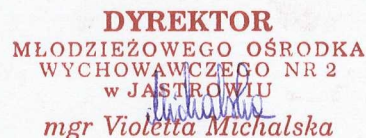 DYREKTOR
MŁODZIEŻOWEGO OŚRODKA
WYCHOWAWCZEGO NR 2
w JASTROWIU
mgr Violetta Michalska